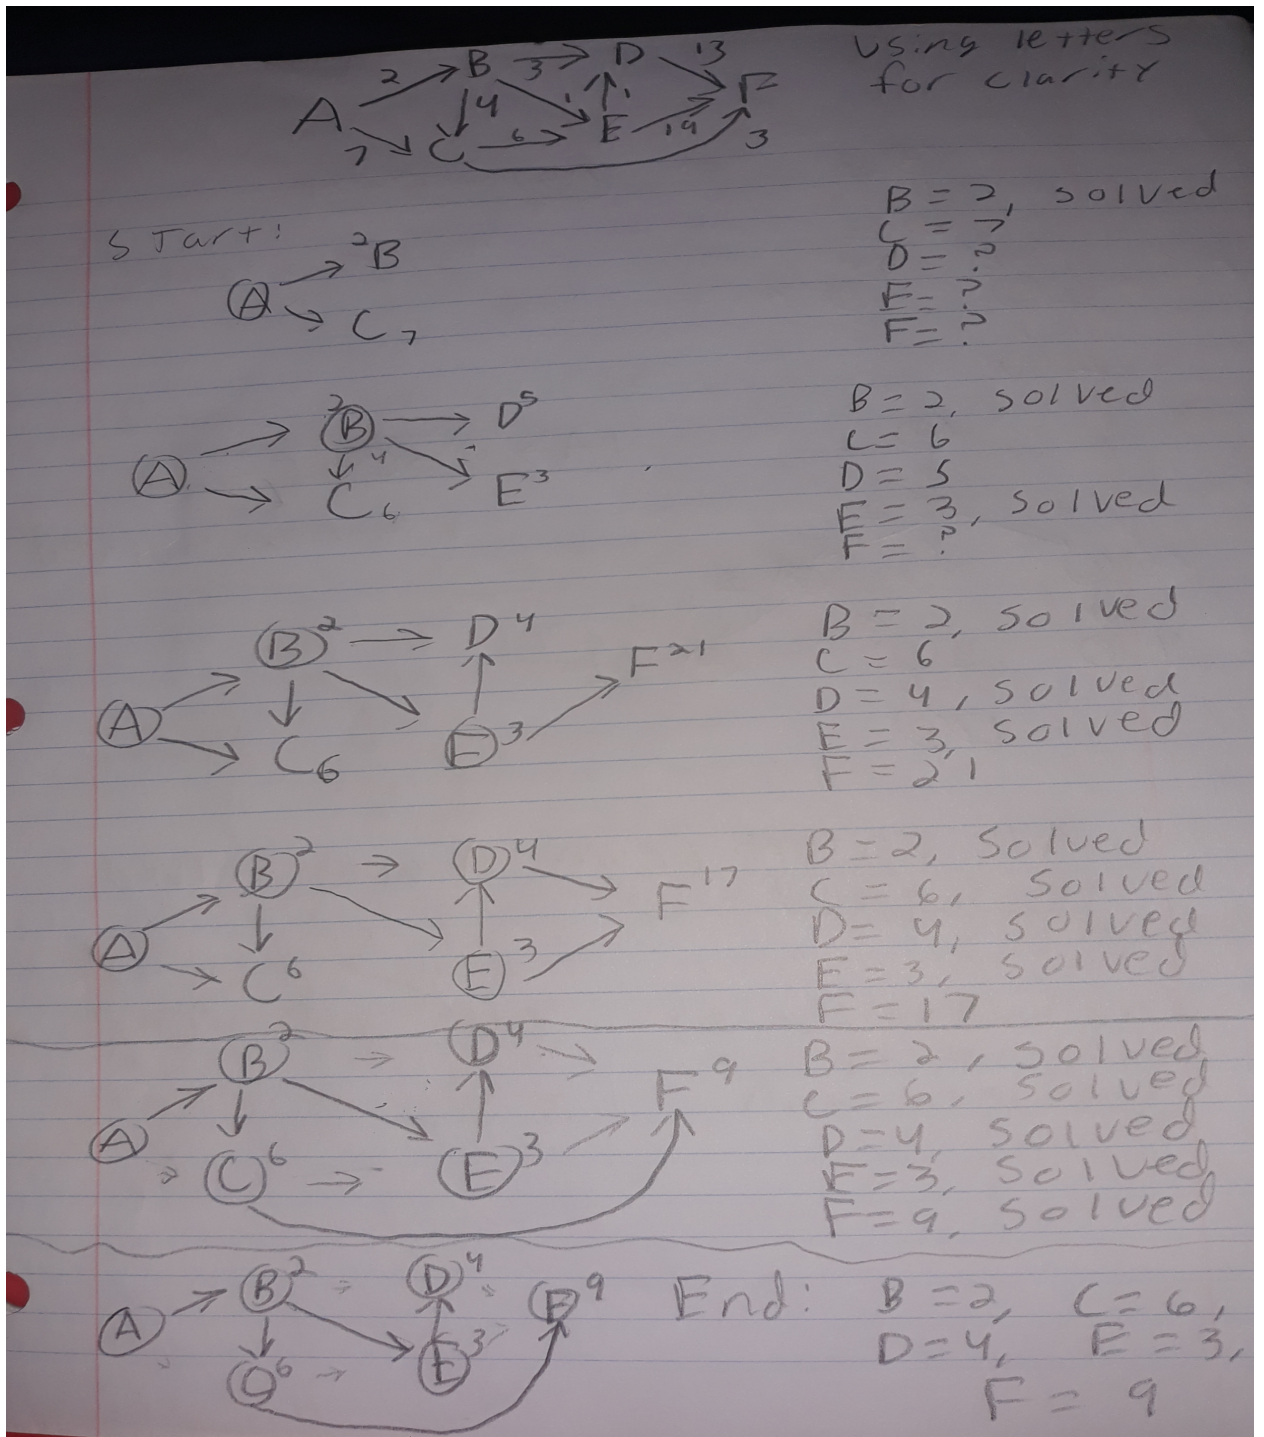 Using letters
for clarity
A 2 B 3 D 13 F
4 1 1
7 C 6 E 19 3
Start:
A 2 B
C 7
B = 2, solved
C = 7
D = ?
E = ?
F = ?
A 2 B D 5
4
C 6 E 3
B = 2, solved
C = 6
D = 5
E = 3, solved
F = ?
B 2 D 4 F 21
A
C 6 E 3
B = 2, solved
C = 6
D = 4, solved
E = 3, solved
F = 21
B 2 D 4 F 17
A
C 6 E 3
B = 2, Solved
C = 6, solved
D = 4, solved
E = 3, solved
F = 17
B 2 D 4 F 9
A
C 6 E 3
B = 2, solved
C = 6, solved
D = 4, solved
E = 3, solved
F = 9, solved
B 2 D 4 9
A
6 E 3
End: B = 2, C = 6,
D = 4, E = 3,
F = 9